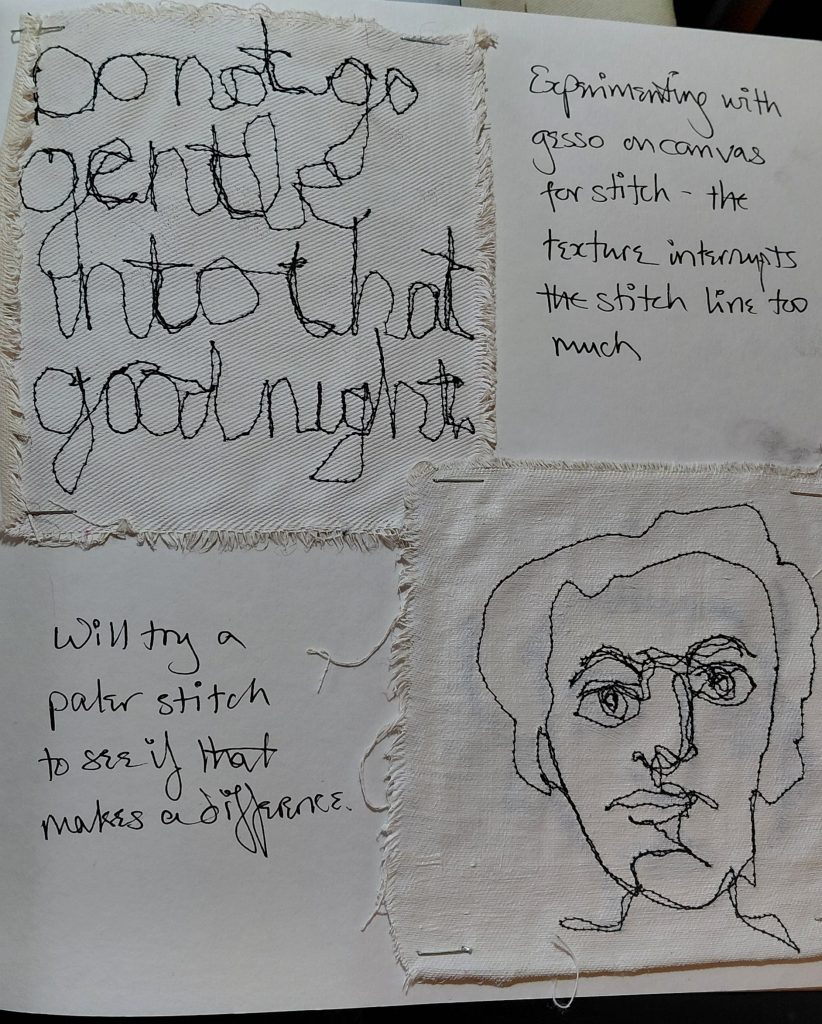 Do not go
gentle
into that
good night.
Experimenting with
gesso on canvas
for stitch - the
texture interrupts
the stitch line too
much
Will try a
paler stitch
to see if that
makes a difference.